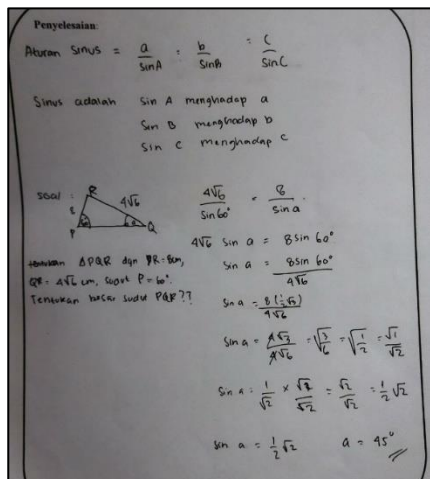 Penyelesaian:
Aturan Sinus = a/sinA = b/sinB = c/sinC
Sinus adalah sin A menghadap a
Sin B menghadap b
Sin C menghadap c
soal :
R
8
4√6
60°
a
P
Q
tentukan ΔPQR dgn PR = 8cm,
QR = 4√6 cm, sudut P = 60°.
Tentukan besar sudut PQR??
4√6/sin 60° = 8/sin a
4√6 sin a = 8 sin 60°
sin a = 8 sin 60°/4√6
sin a = 8(½√3)/4√6
sin a = 4√3/4√6 = √3/6 = √1/2 = √1/√2
sin a = 1/√2 × √2/√2 = √2/√2 = ½√2
sin a = ½√2 a = 45°